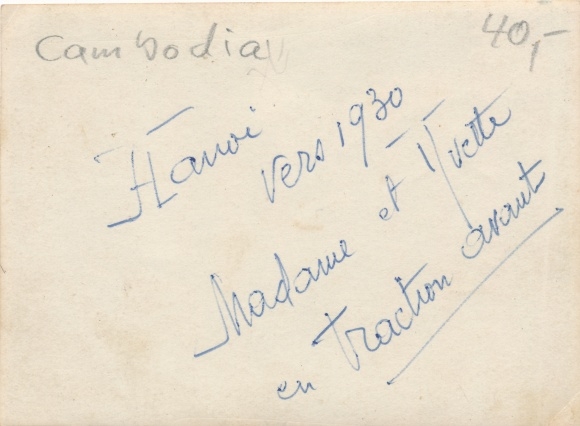 Cambodia
40,-
Hanoi
vers 1930
Madame et Yvette
en traction avant